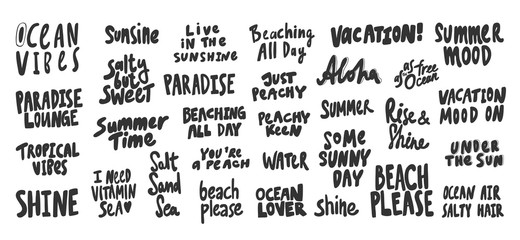 OCEAN
VIBES
PARADISE
LOUNGE
TROPICAL
VIBES
SHINE
Sunsine
Salty
but
Sweet
Summer
Time
I NEED
VITAMIN
SEA
Salt
Sand
Sea
Live
IN THE
SUNSHINE
PARADISE
BEACHING
ALL DAY
YOU'RE
a PEACH
beach
please
Beaching
All Day
JUST
PEACHY
PEACHY
KEEN
WATER
OCEAN
LOVER
VACATION!
Aloha
SUMMER
SOME
SUNNY
DAY
shine
as free
as Ocean
Rise &
Shine
BEACH
PLEASE
SUMMER
MOOD
VACATION
MOOD ON
UNDER
THE SUN
OCEAN AIR
SALTY HAIR